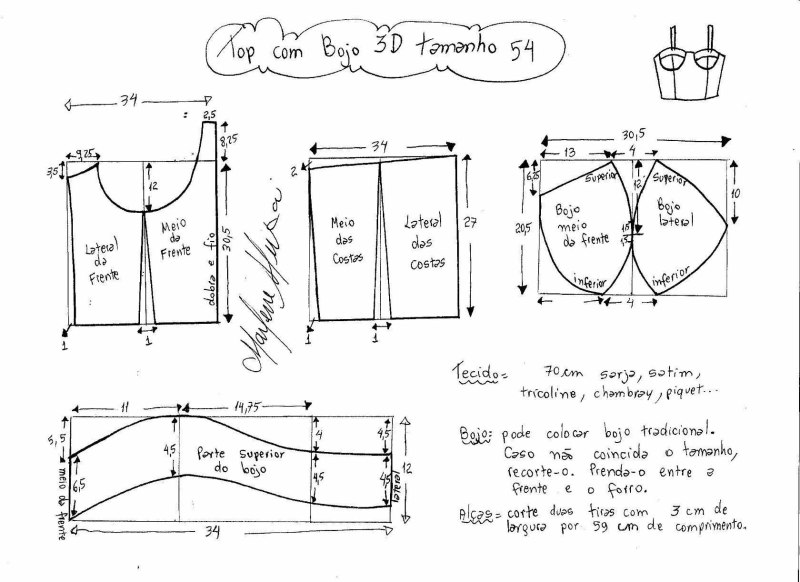 Top com Bojo 3D tamanho 54
34
2,5
8,25
9,25
3,5
12
30,5
Lateral da Frente
Meio da Frente
dobra e fio
1
1
Marlene Mukai
34
2
27
Meio das Costas
Lateral das Costas
1
1
30,5
13
4
12
10
20,5
superior
superior
Bojo meio da frente
Bojo lateral
1,5
1,5
inferior
inferior
4
11
14,75
4,5
4
4,5
12
6,5
4,5
4,5
Parte Superior do bojo
meio da frente
lateral
34
Tecido= 70cm sarja, satim,
tricoline, chambray, piquet...
Bojo: pode colocar bojo tradicional.
Caso não coincida o tamanho,
recorte-o. Prenda-o entre a
frente e o forro.
Alças= corte duas tiras com 3 cm de
largura por 59 cm de comprimento.